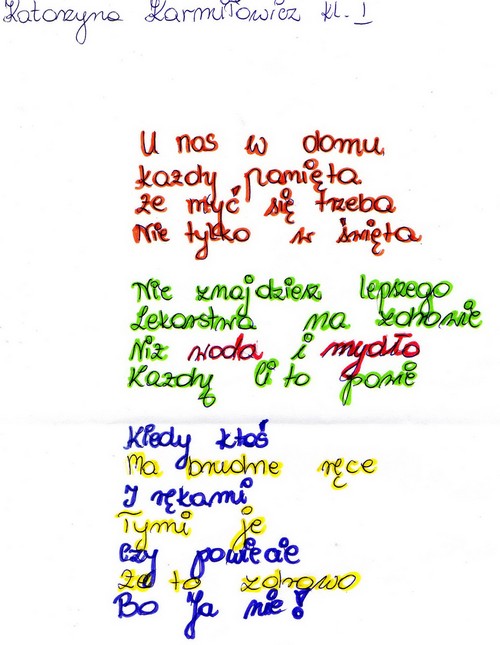 Katarzyna Karmiłowicz kl. I
U nas w domu
każdy pamięta
że myć się trzeba
Nie tylko w święta
Nie znajdziesz lepszego
Lekarstwa na zdrowie
Niż woda i mydło
Każdy Ci to powie
Kiedy ktoś
Ma brudne ręce
I rękami
Tymi je
Czy powiecie
Że to zdrowo
Bo Ja nie!